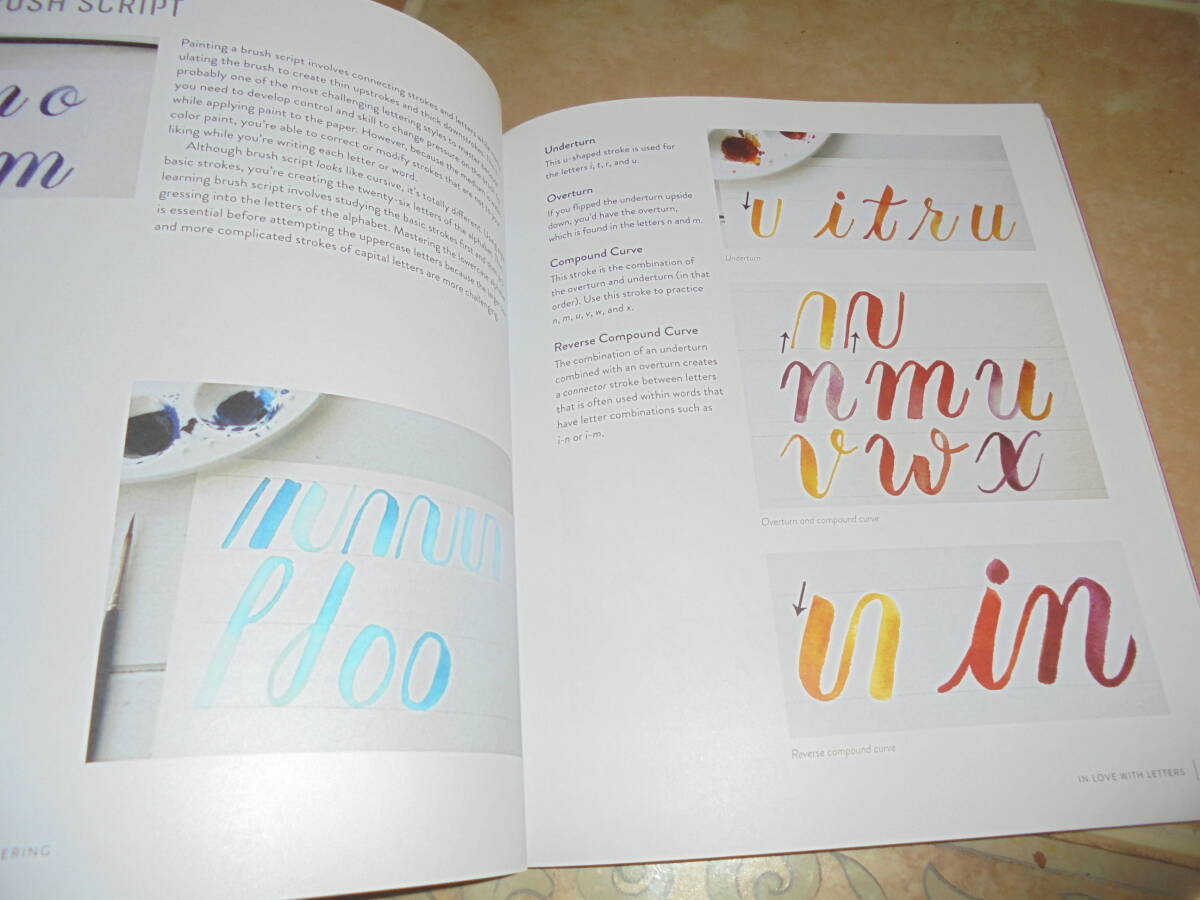 BRUSH SCRIPT
no
m
Painting a brush script involves connecting strokes and letters
ulating the brush to create thin upstrokes and thick downstrokes
probably one of the most challenging lettering styles to master
you need to develop control and skill to change pressure on the brush
while applying paint to the paper. However, because the
color paint, you're able to correct or modify strokes that are not to your
liking while you're writing each letter or word.
Although brush script looks like cursive, it's totally different. Using
basic strokes, you're creating the twenty-six letters of the alphabet
learning brush script involves studying the basic strokes first and
gressing into the letters of the alphabet. Mastering the lowercase
is essential before attempting the uppercase letters because the larger
and more complicated strokes of capital letters are more challenging.
ERING
Underturn
This u-shaped stroke is used for
the letters i, t, r, and u.
Overturn
If you flipped the underturn upside
down, you'd have the overturn,
which is found in the letters n and m.
Compound Curve
This stroke is the combination of
the overturn and underturn (in that
order). Use this stroke to practice
n, m, u, v, w, and x.
Reverse Compound Curve
The combination of an underturn
combined with an overturn creates
a connector stroke between letters
that is often used within words that
have letter combinations such as
i-n or i-m.
i t r u
Underturn
n m u
v w x
Overturn and compound curve
in
Reverse compound curve
IN LOVE WITH LETTERS